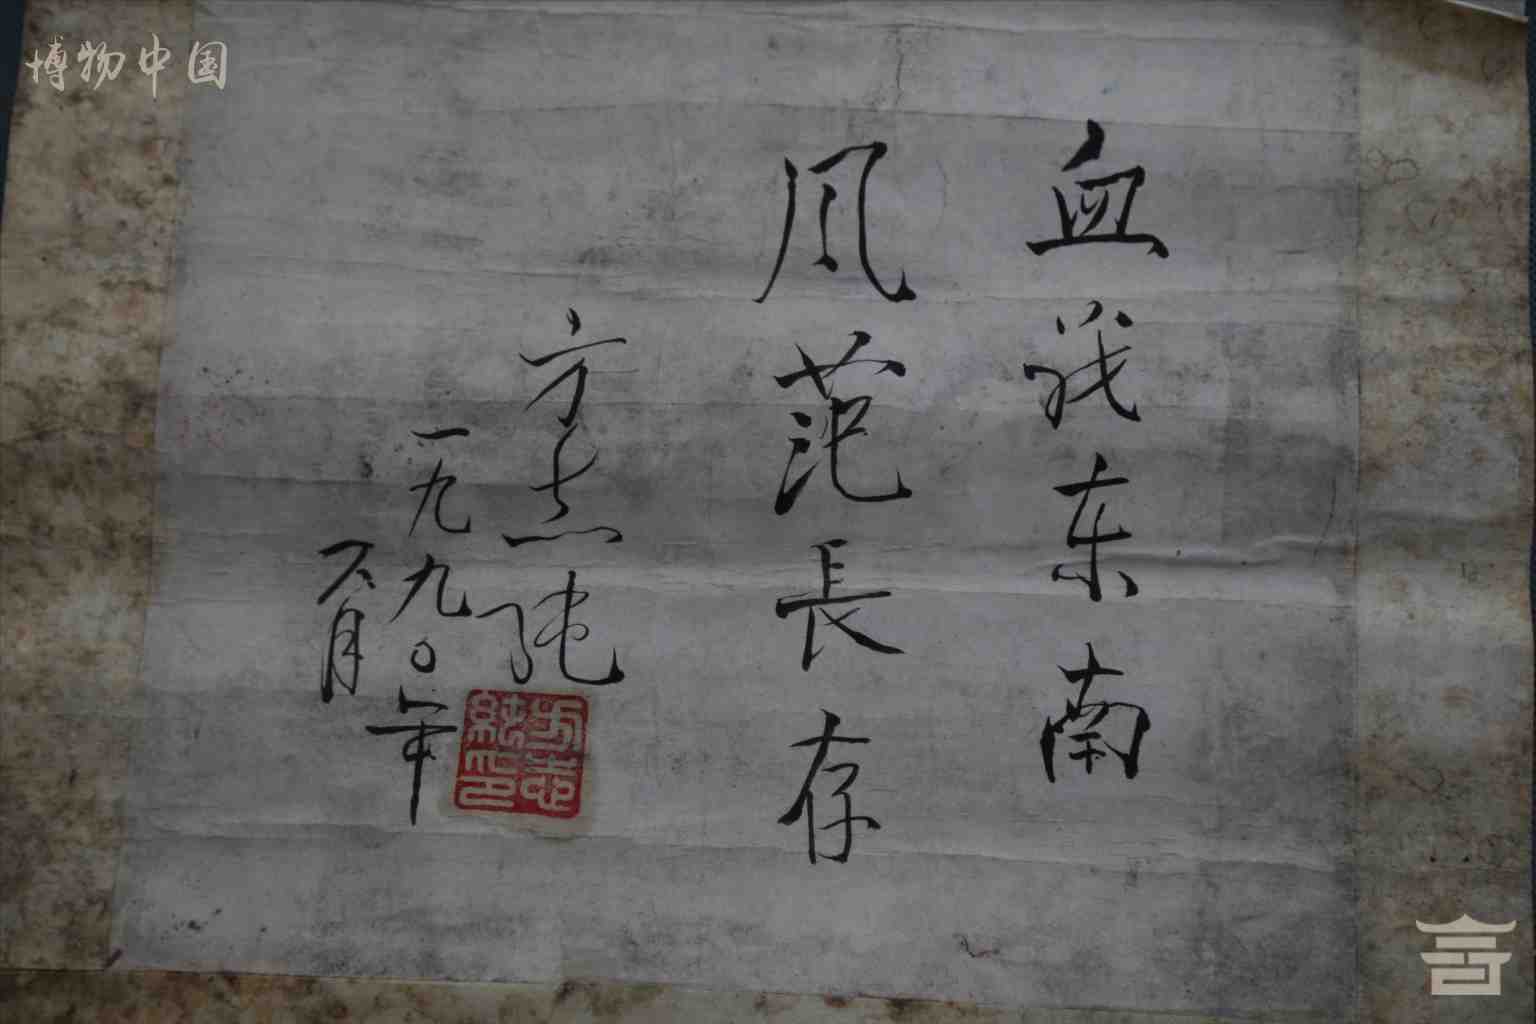 博物中国
血战东南
风范長存
方志纯
一九九〇年
六月
方志純印